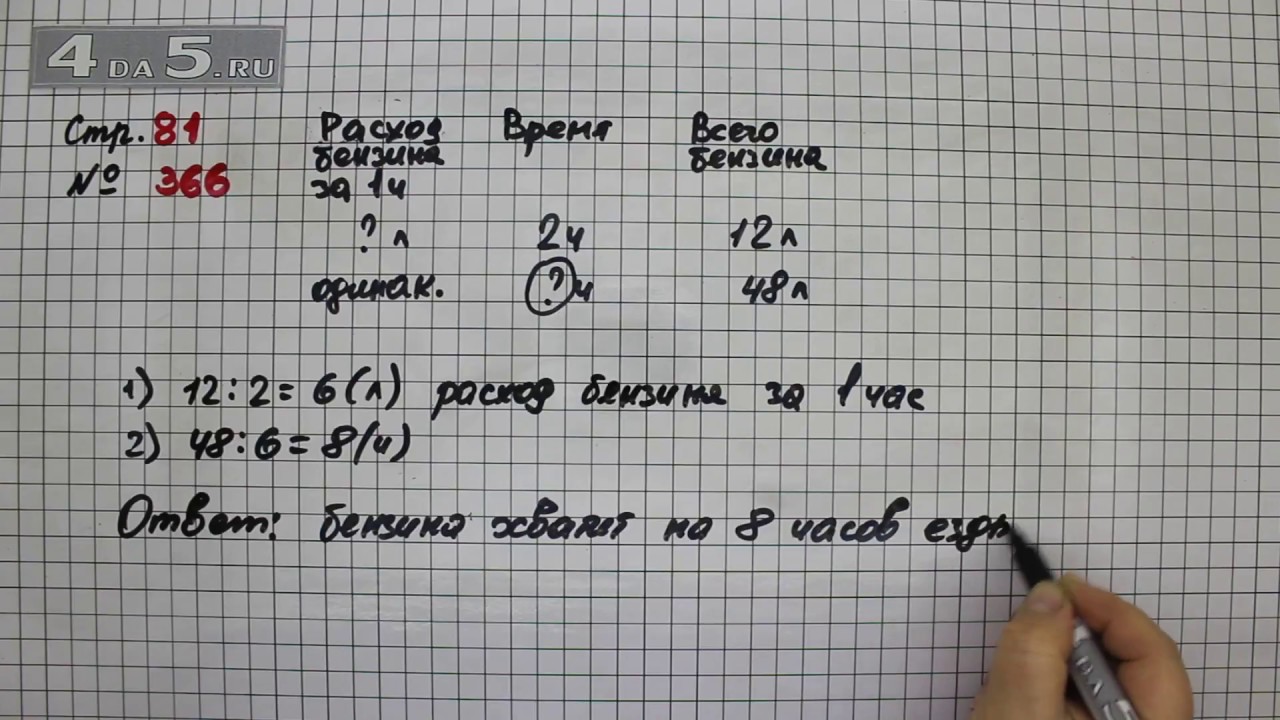 4 DA 5.RU
Стр. 81
№ 366
Расход бензина за 1ч
Время
Всего бензина
? л 2ч 12л
одинак. ? ч 48л
1) 12:2= 6(л) расход бензина за 1 час
2) 48:6= 8(ч)
Ответ: бензина хватит на 8 часов езд
DA 5